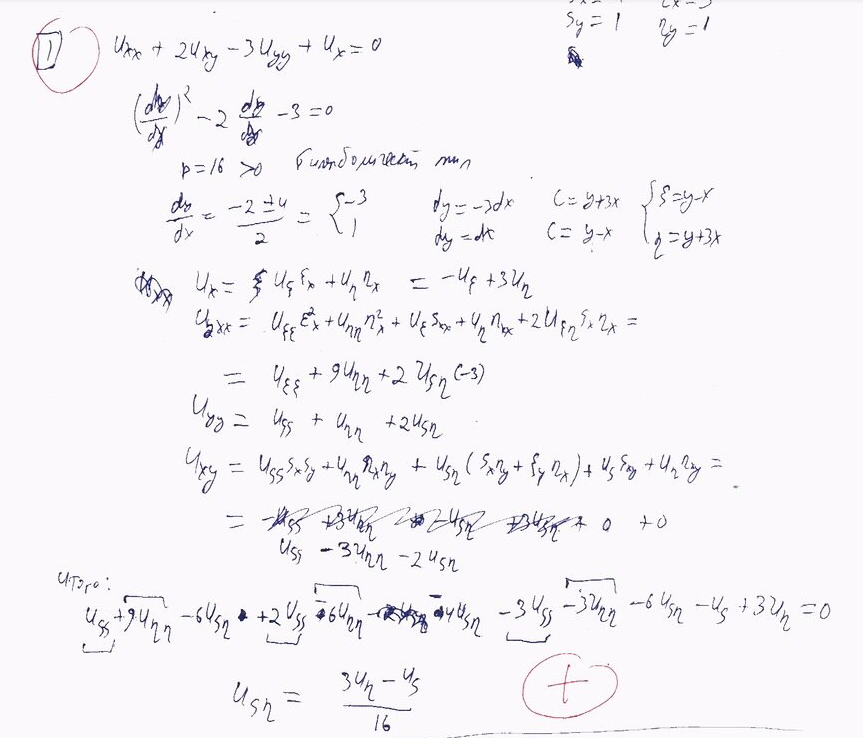 ξy = 1 ηy = 1
1 Uxx + 2Uxy − 3Uyy + Ux = 0
(dy/dx)² − 2 dy/dx − 3 = 0
D = 16 > 0 Гиперболический тип
dy/dx = (−2 ± 4)/2 = { −3 1 dy = −3dx dy = dx C = y+3x C = y−x { ξ = y−x η = y+3x
Ux = Uξ ξx + Uη ηx = −Uξ + 3Uη
Uxx = Uξξ ξx² + Uηη ηx² + Uξ ξxx + Uη ηxx + 2Uξη ξx ηx =
= Uξξ + 9Uηη + 2Uξη(−3)
Uyy = Uξξ + Uηη + 2Uξη
Uxy = Uξξ ξx ξy + Uηη ηx ηy + Uξη (ξx ηy + ξy ηx) + Uξ ξxy + Uη ηxy =
= + 0 + 0
Uξξ − 3Uηη − 2Uξη
Итого:
Uξξ + 9Uηη − 6Uξη + 2Uξξ − 6Uηη − 4Uξη − 3Uξξ − 3Uηη − 6Uξη − Uξ + 3Uη = 0
Uξη = (3Uη − Uξ)/16 +